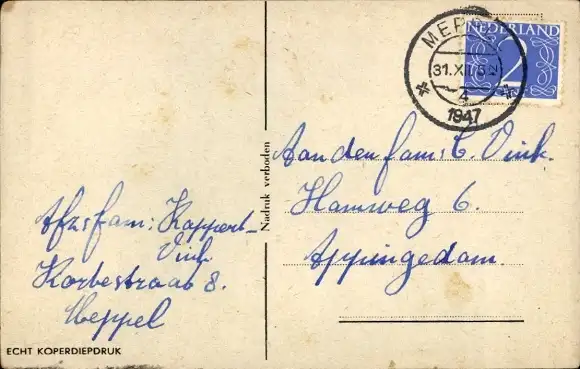 MEPPEL
31.XII.5
4
1947
NEDERLAND
2
Aan den fam: C. Vink.
Hamweg 6.
Appingedam.
Nadruk verboden
Afz: fam: Kappert-
Vink
Korbestraat 8.
Meppel
ECHT KOPERDIEPDRUK